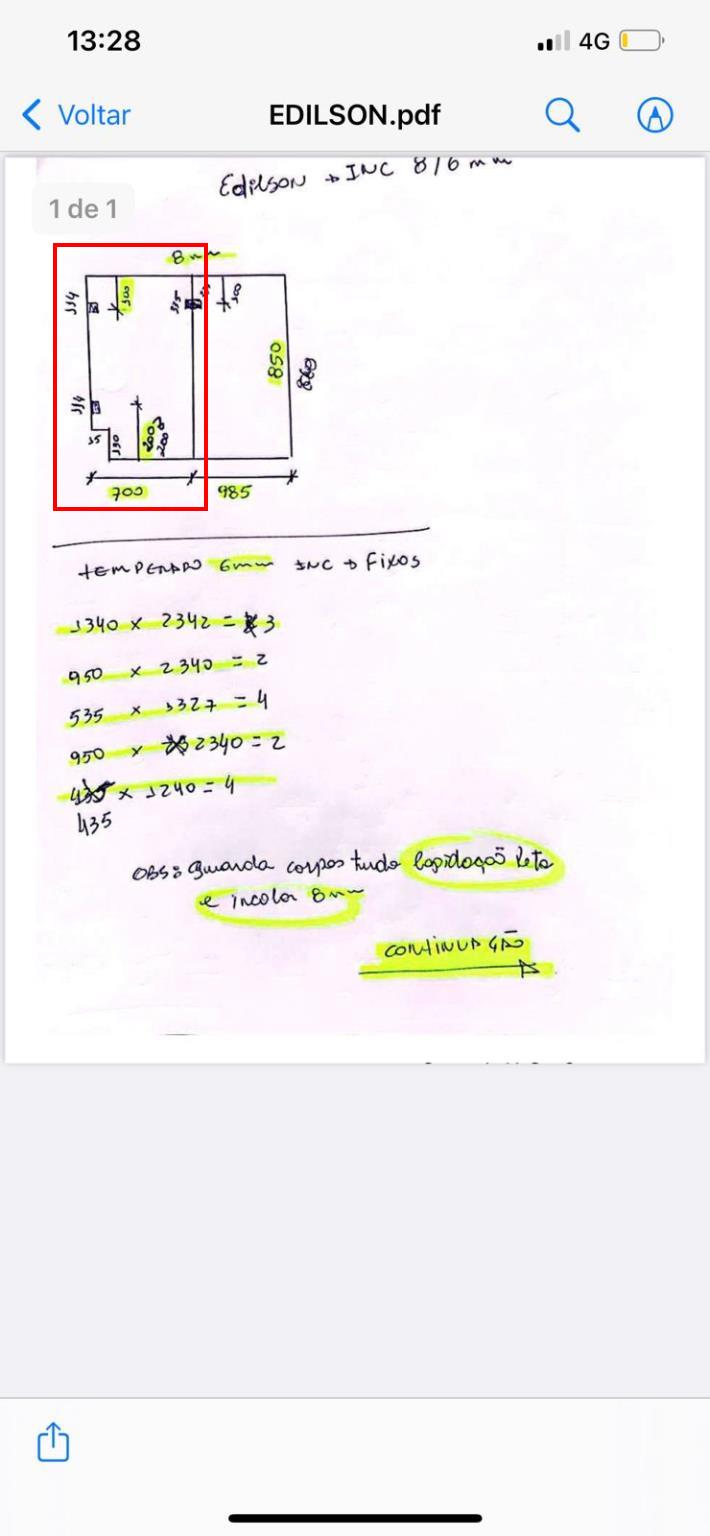 13:28
4G
Voltar
EDILSON.pdf
1 de 1
Edilson → INC 8/6 mm
8mm
114
100
115
100
850
860
114
35
130
200
200
700
985
TEMPERADO 6mm INC → Fixos
1340 x 2342 = 3
950 x 2340 = 2
535 x 1327 = 4
950 x 2340 = 2
435 x 1240 = 4
435
OBS: guarda corpos tudo lapidação Reta
e incolor 8mm
CONTINUAÇÃO